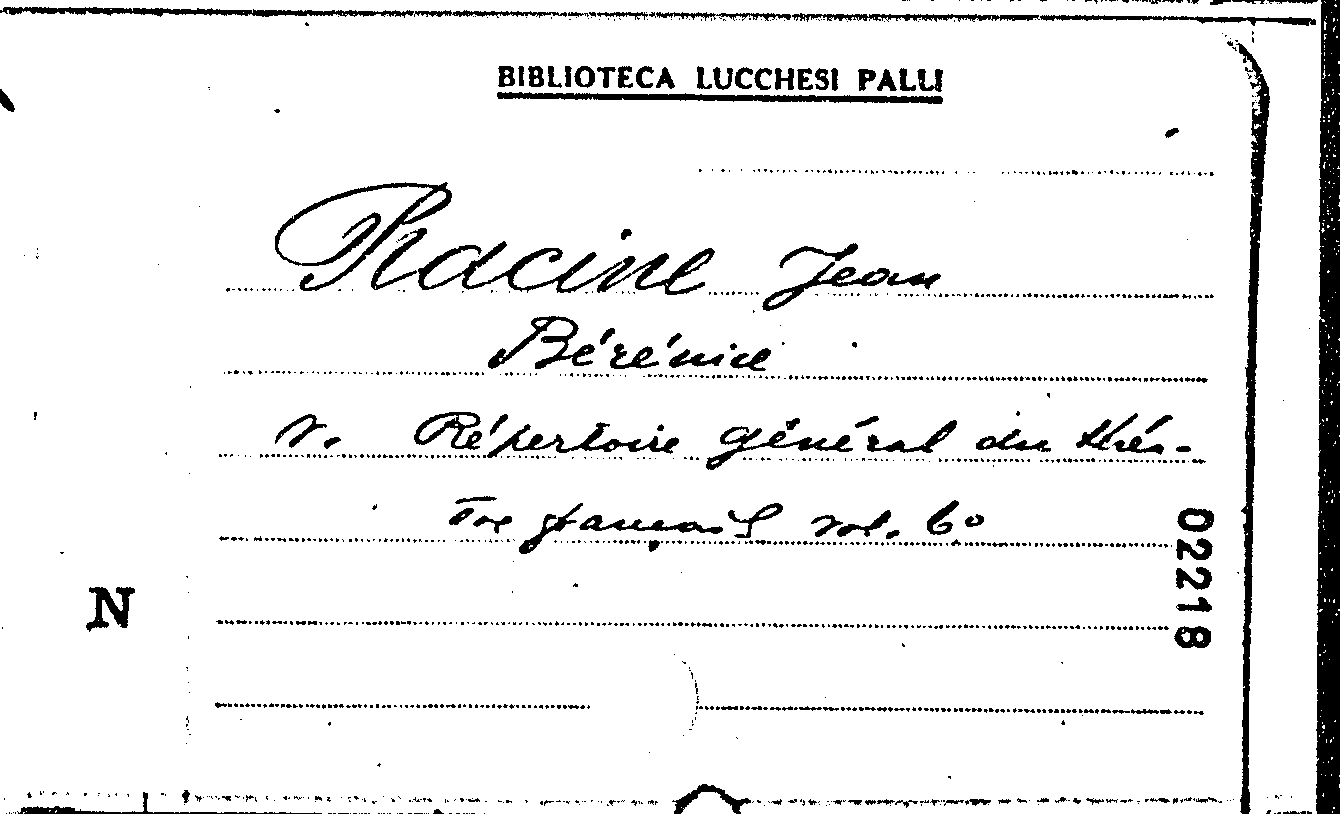 BIBLIOTECA LUCCHESI PALLI
Racine Jean
Bérénice
v. Répertoire général du théa-
tre français vol. 6°
N
02218